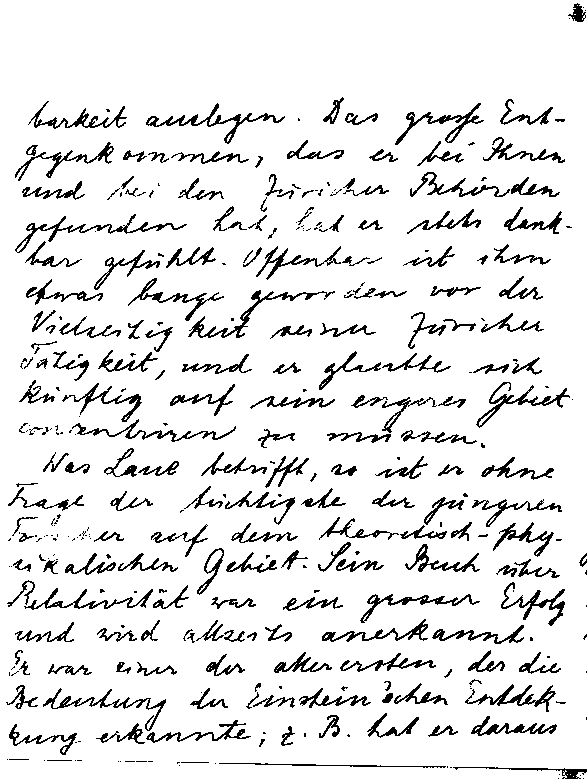 barkeit auslegen. Das grosse Ent-
gegenkommen, das er bei Ihnen
und bei den Züricher Behörden
gefunden hat, hat er stets dank-
bar gefühlt. Offenbar ist ihm
etwas bange geworden vor der
Vielseitigkeit seiner Züricher
Tätigkeit, und er glaubte sich
künftig auf sein engeres Gebiet
conzentriren zu müssen.
Was Laue betrifft, so ist er ohne
Frage der tüchtigste der jüngeren
Forscher auf dem theoretisch-phy-
sikalischen Gebiet. Sein Buch über
Relativität war ein grosser Erfolg
und wird allseits anerkannt.
Er war einer der allerersten, der die
Bedeutung der Einstein'schen Entdek-
kung erkannte; z. B. hat er daraus